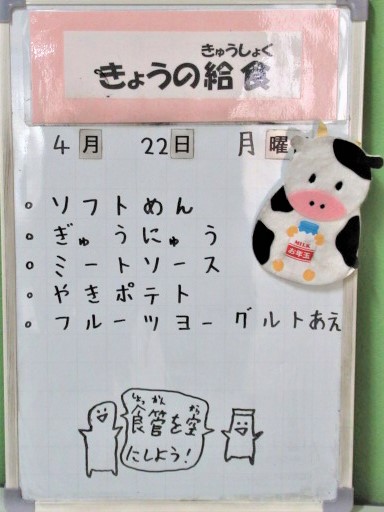 きゅうしょく
きょうの給食
4月 22日 月曜
ソフトめん
ぎゅうにゅう
ミートソース
やきポテト
フルーツヨーグルトあえ
MILK
お年玉
しょっかん から
食管を空
にしよう！